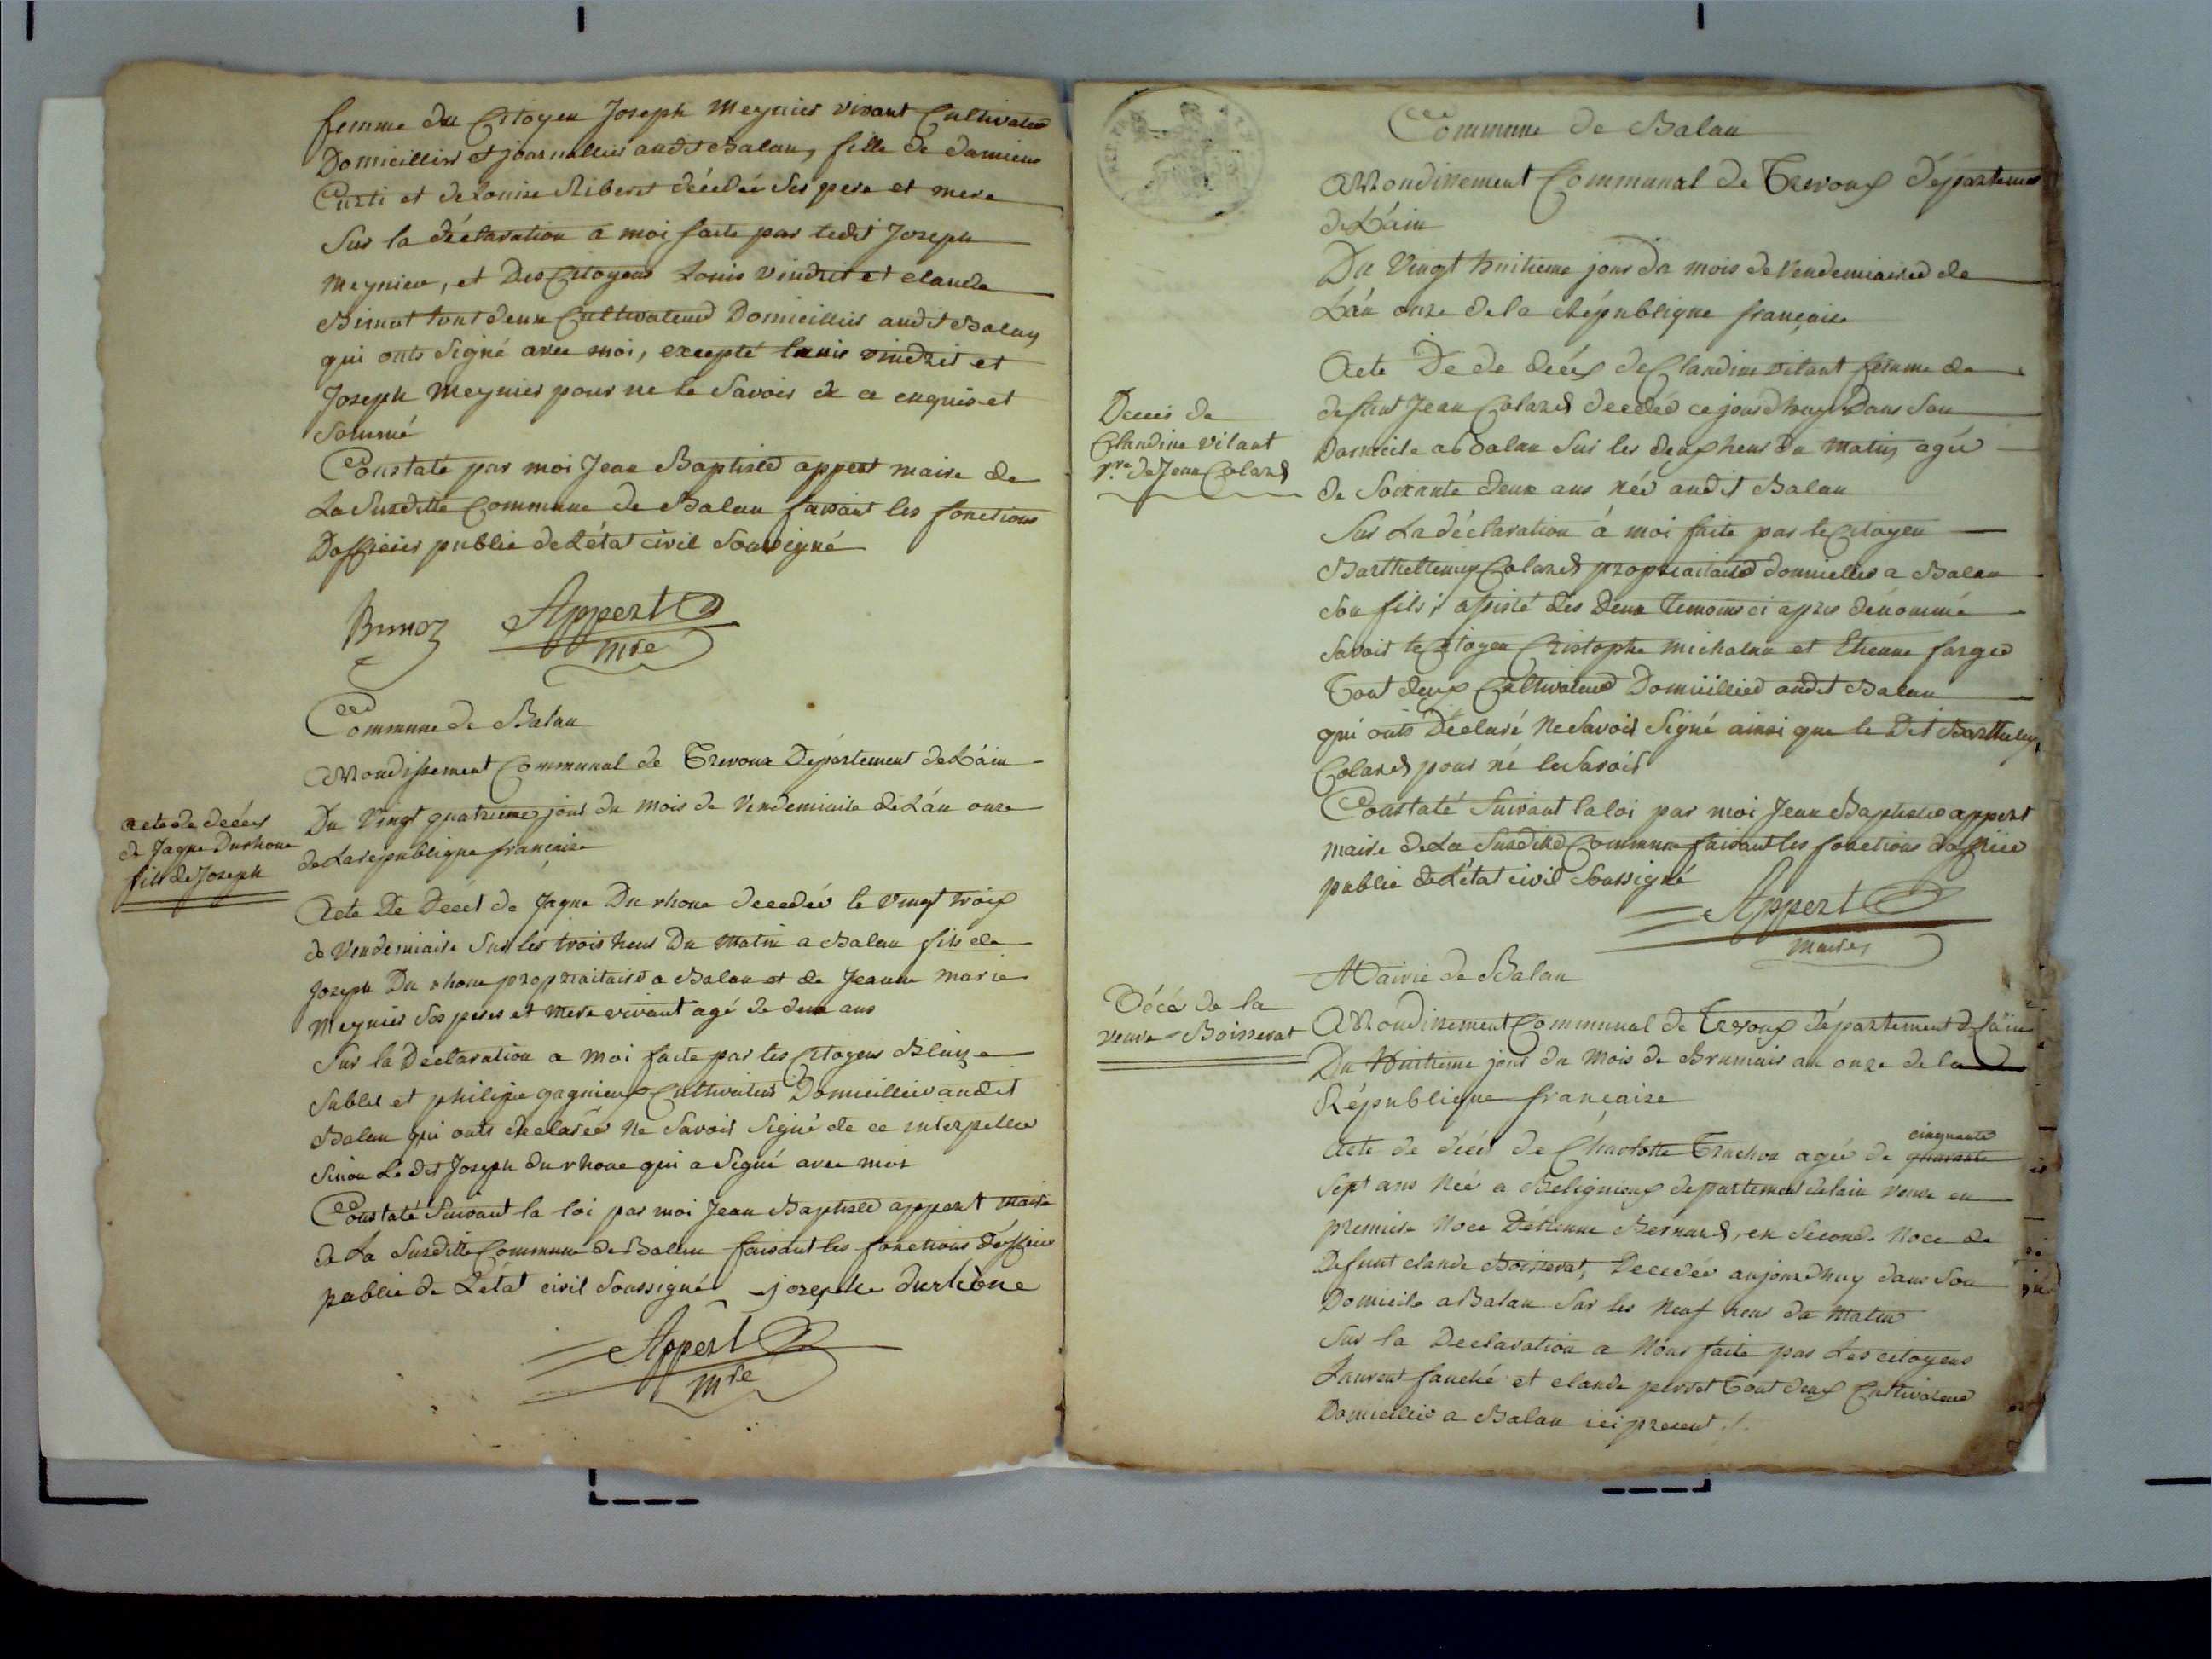 femme du Citoyen Joseph Meynier vivant Cultivateur
Domicillier et journallier audit Balan, fille de damiens
Curti et de Louise Riberet décedée ses pere et mere
Sur la déclaration a moi faite par ledit Joseph
Meynier, et Des Citoyens Louis vindrit et claude
Bimot tout deux Cultivateurs Domicilliés audit Balan
qui onts Signé avec moi, excepté louis vindrit et
Joseph Meynier pour ne le Savoir de ce enquis et
Sommé
Constaté par moi Jean Baptiste appert maire de
La Susditte Commune de Balan faisant les fonctions
Dofficier public de L'état civil Soussigné
Appert
mre
Commune de Balan
Arrondissement Communal de Trevoux Département de L'áin
Du Vingt quatrieme jour du mois de Vendemiaire de L'án onze
de La republique françaize
acte de décés
de Jaque Durhone
fils de Joseph
Acte De Décés de Jaque Du rhone decedée le vingt trois
de Vendemiaire Sur les trois heur Du Matin a Balan fils de
Joseph Du rhone propriaitaire a Balan et de Jeanne Marie
Meynier Ses peres et Mere vivant agé de deux ans
Sur la Déclaration a Moi faite par les Citoyens Blaize
Sublet et philipe gagnieux Cultivateur Domicilliér audit
Balan qui onts declarée Ne Savoir Signé de ce interpellée
Sinon Le dit Joseph du rhone qui a Signé avec moi
Constaté Suivant la loi par moi Jean Baptiste appert Maire
de La Susditte Commune de Balan faisant les fonctions d'officier
public de L'état civil Soussigné josephe durhône
Appert
mre
Commune de Balan
Arrondissement Communal de Trevoux département
de L'áin
Du Vingt huitieme jour du mois de Vendemiaire de
L'án onze de la République française
Deces de
Claudine vitant
vve de Jean Coland
Acte De de décés de Claudine vitant femme de
defunt Jean Coland decedée ce jourd'huy Dans Son
Domicile a Balan Sur les deux heur du Matin agée
de Soixante deux ans Née audit Balan
Sur La déclaration á moi faite par le Citoyen
Barthellemy Coland propriaitaire domicilier a Balan
Son fils, assisté des deux temoins ci apres dénommé
Savoir le Citoyen Cristophe michalan et Etienne farge
Tout deux Cultivateur Domicillié audit Balan
qui onts Déclaré Ne Savoir Signé ainsi que le Dit Barthelemy
Coland pour né le Savoir
Constaté Suivant la loi par moi Jean Baptiste appert
maire de La Susditte Commune faisant les fonctions d'officier
public de L'état civil Soussigné
Appert
maire
Mairie de Balan
Décé de la
veuve Boisserat
Arrondissement Communal de Trevoux département de l'ain
Du Huitieme jour du Mois de Brumair an onze de la
République françaize
cinquante
Acte de décés de Charlotte Truchon agée de quarante
Sept ans Née a Beligneux departement de lain veuve en
premiere Noce Détienne Bernard, en Seconde Noce de
Defunt claude Boisserat, Decedée aujourdhuy dans Son
Domicile a Balan Sur les Neuf heur du Matin
Sur la Declaration a Nous faite par Les citoyens
Laurent fauché et claude perret Tout deux Cultivateur
Domicillié a Balan ici present